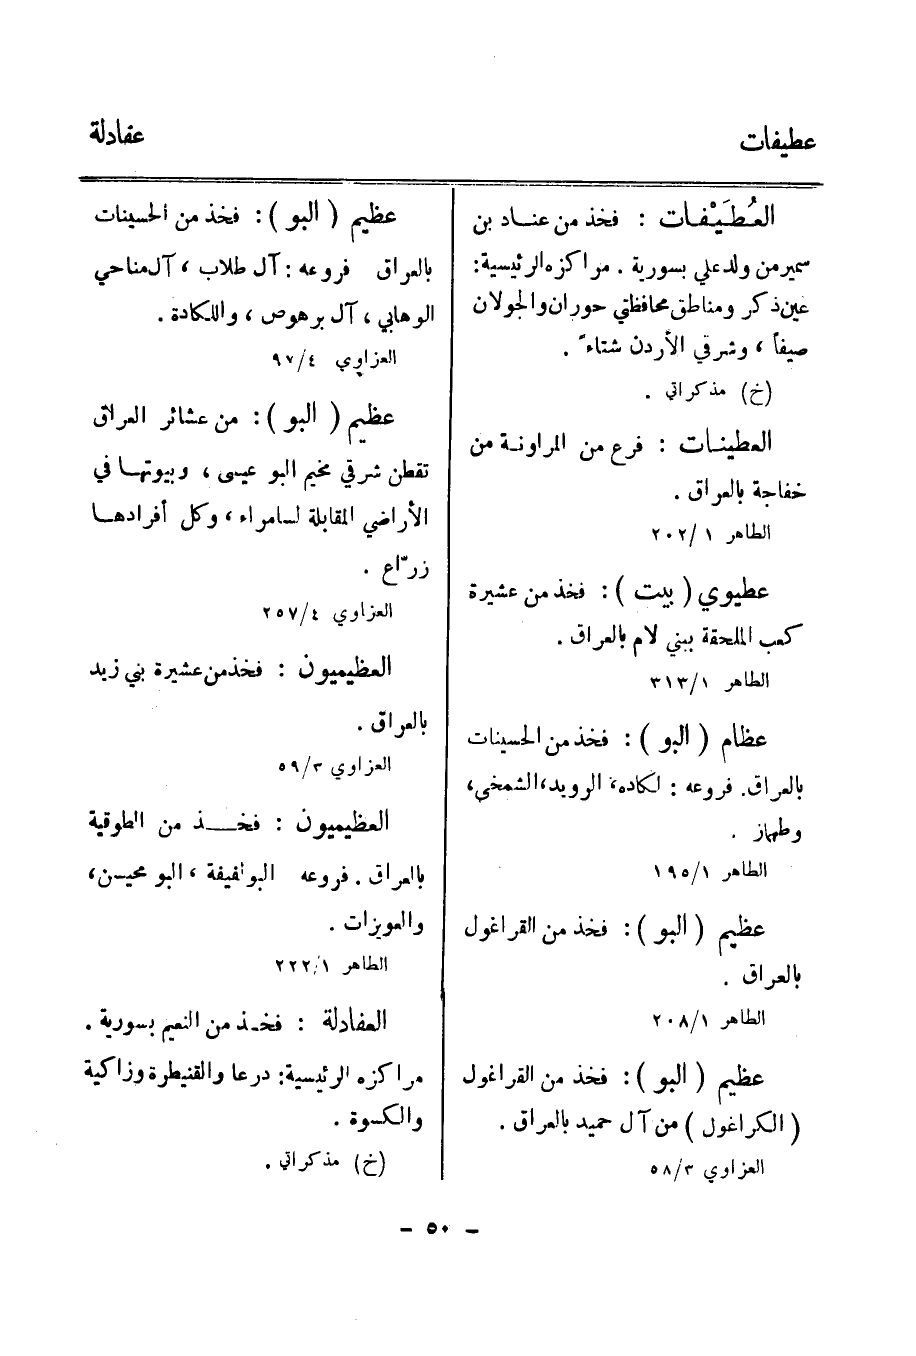 عطيفات
عفادلة
العُطَيْفات : فخذ من عناد بن
سمير من ولد علي بسورية . مراكزه الرئيسية :
عين ذكر ومناطق محافظتي حوران والجولان
صيفاً ، وشرقي الأردن شتاءً .
(خ) مذكراتي .
العطينات : فرع من المراونة من
خفاجة بالعراق .
الطاهر ٢٠٢/١
عطيوي ( بيت ) : فخذ من عشيرة
كعب الملحقة ببني لام بالعراق .
الطاهر ٣١٣/١
عظام ( البو ) : فخذ من الحسينات
بالعراق. فروعه : لكاده، الرويد، الشمخي،
وطهاز .
الطاهر ١٩٥/١
عظيم ( البو ) : فخذ من القراغول
بالعراق .
الطاهر ٢٠٨/١
عظيم ( البو ) : فخذ من القراغول
( الكراغول ) من آل حميد بالعراق .
العزاوي ٥٨/٣
عظيم ( البو ) : فخذ من الحسينات
بالعراق فروعه : آل طلاب ، آل مناحي
الوهابي ، آل برهوص ، واللكادة .
العزاوي ٩٧/٤
عظيم ( البو ) : من عشائر العراق
تقطن شرقي مخيم البو عيسى ، وبيوتها في
الأراضي المقابلة لسامراء ، وكل أفرادها
زرّاع .
العزاوي ٢٥٧/٤
العظيميون : فخذ من عشيرة بني زيد
بالعراق .
العزاوي ٥٩/٣
العظيميون : فخذ من الطوقية
بالعراق . فروعه البو لفيفة ، البو محيسن،
والعويزات .
الطاهر ٢٢٢/١
العفادلة : فخذ من النعيم بسورية .
مراكزه الرئيسية : درعا والقنيطرة وزاكية
والكسوة .
(خ) مذكراتي .
- ٥٠ -